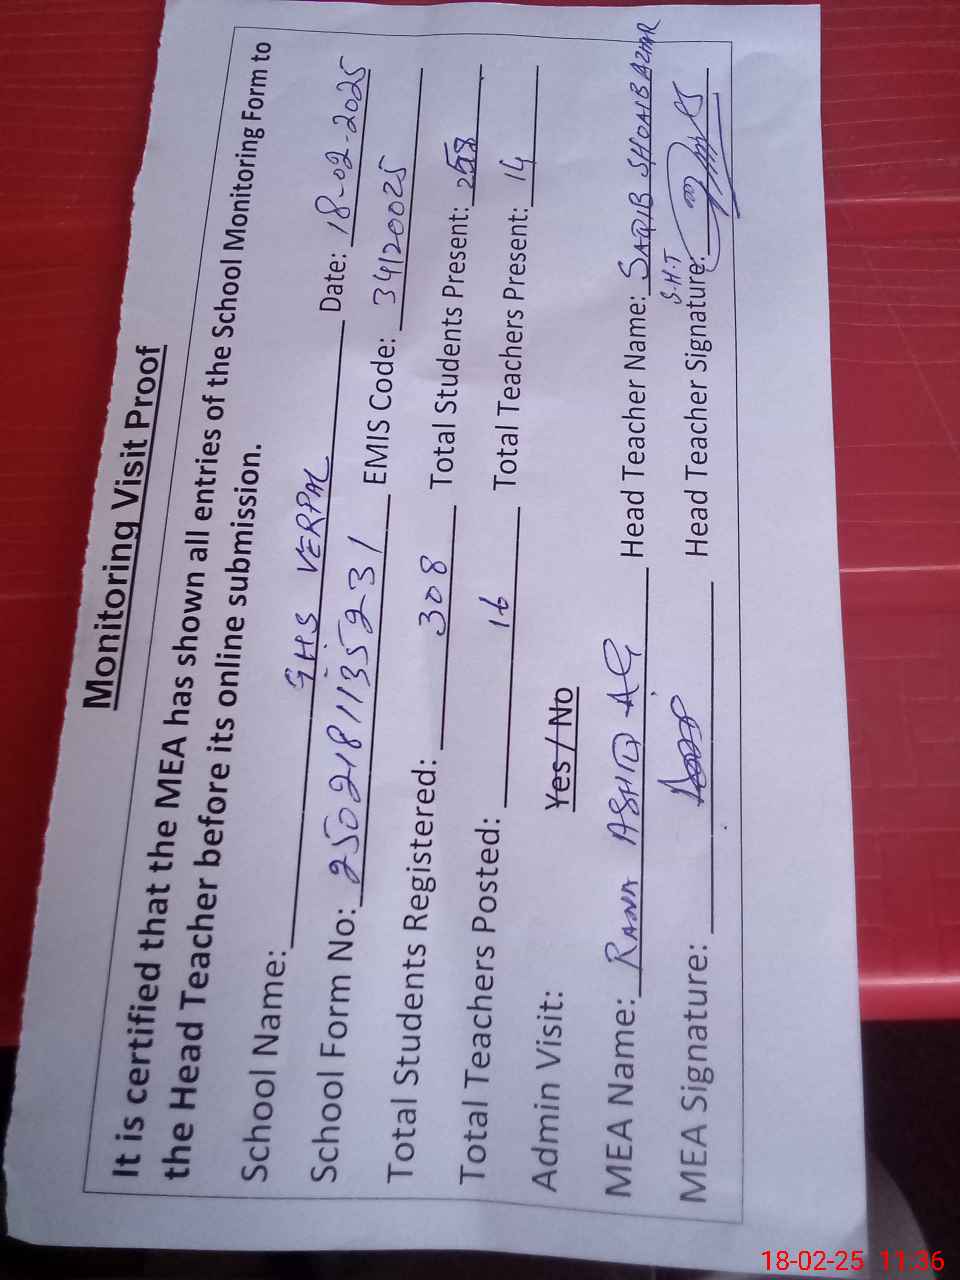 Monitoring Visit Proof
It is certified that the MEA has shown all entries of the School Monitoring Form to
the Head Teacher before its online submission.
School Name: GHS VERPAL Date: 18-02-2025
School Form No: 2502181135231 EMIS Code: 34120025
Total Students Registered: 308 Total Students Present: 258
Total Teachers Posted: 16 Total Teachers Present: 14
Admin Visit: Yes / No
MEA Name: RANA ASHFAQ Head Teacher Name: SAQIB SHOAIB AZHAR
S.H.T
MEA Signature: Head Teacher Signature:
18-02-25 11:36